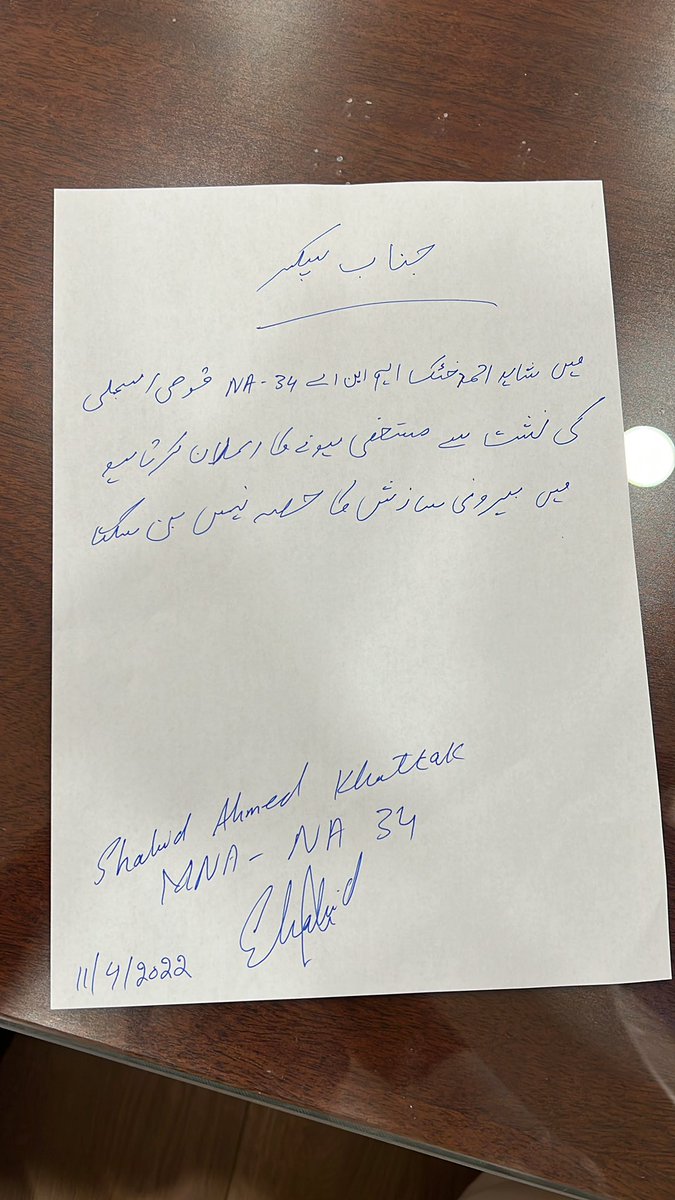 جناب سپیکر
میں شاہد احمد خٹک ایم این اے NA-34 قومی اسمبلی
کی نشست سے مستعفی ہونے کا اعلان کرتا ہو
میں بیرونی سازش کا حصہ نہیں بن سکتا
Shahid Ahmed Khattak
MNA - NA 34
Shahid
11/4/2022